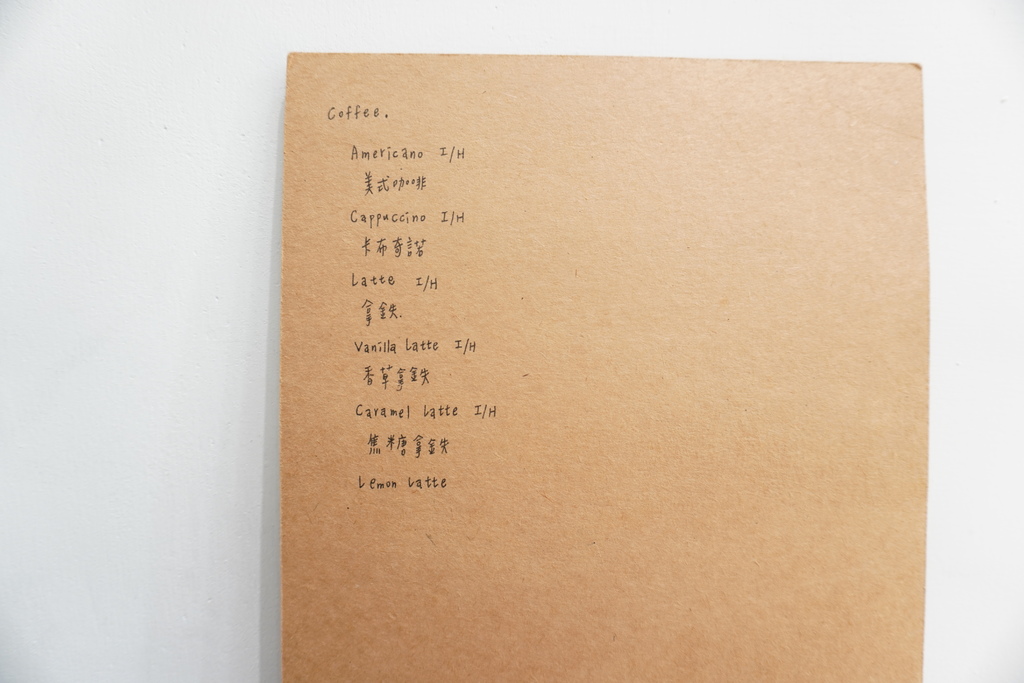 Coffee.
Americano I/H
美式咖啡
Cappuccino I/H
卡布奇諾
Latte I/H
拿鉄.
Vanilla Latte I/H
香草拿鉄
Caramel Latte I/H
焦糖拿鉄
Lemon Latte